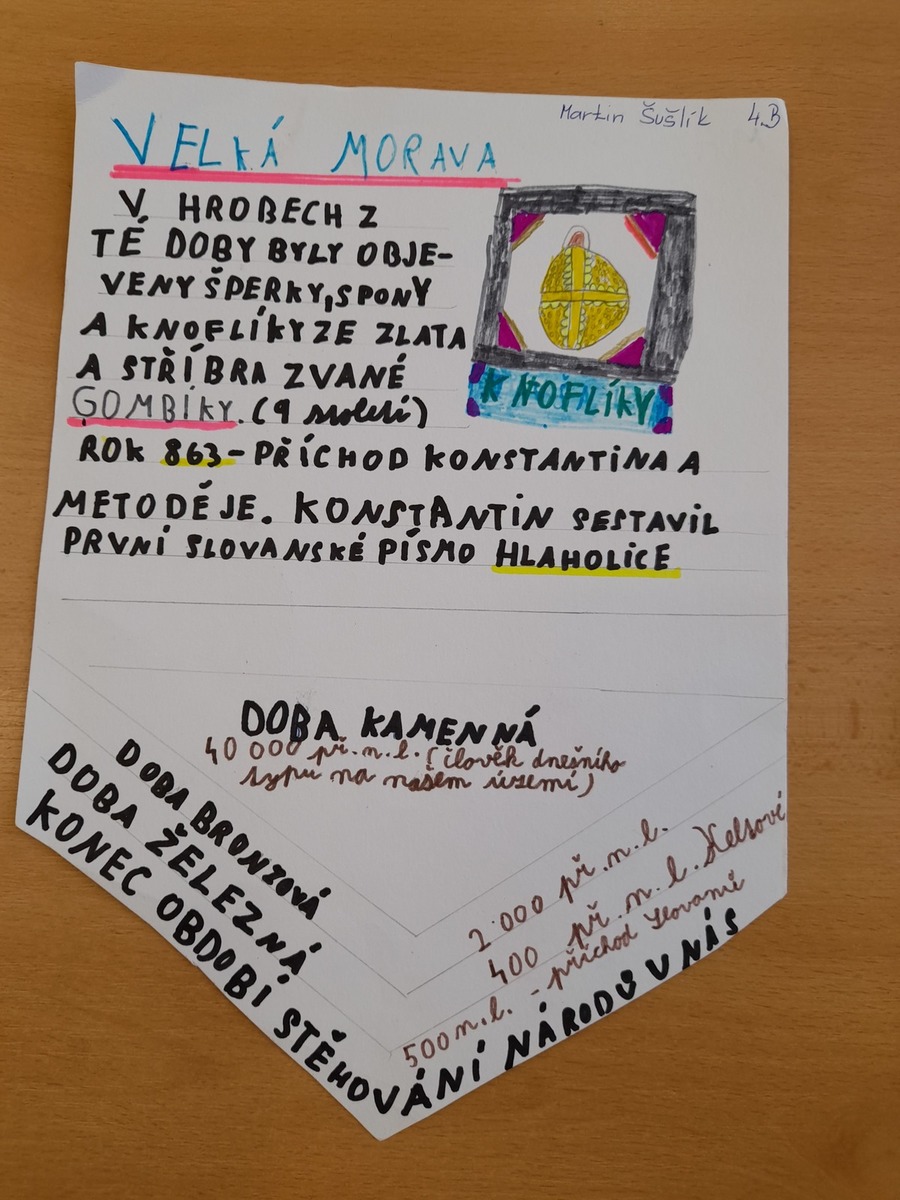 Martin Šušlík 4.B
VELKÁ MORAVA
V HROBECH Z
TÉ DOBY BYLY OBJE-
VENY ŠPERKY, SPONY
A KNOFLÍKY ZE ZLATA
A STŘÍBRA ZVANÉ
GOMBÍKY. (9 století)
KNOFLÍKY
ROK 863 - PŘÍCHOD KONSTANTINA A
METODĚJE. KONSTANTIN SESTAVIL
PRVNÍ SLOVANSKÉ PÍSMO HLAHOLICE
DOBA KAMENNÁ
40 000 př. n. l. (člověk dnešního
typu na našem území)
DOBA BRONZOVÁ
2 000 př. n. l.
DOBA ŽELEZNÁ
400 př. n. l. Keltové
500 n. l. - příchod Slované
KONEC OBDOBÍ STĚHOVÁNÍ NÁRODŮ U NÁS